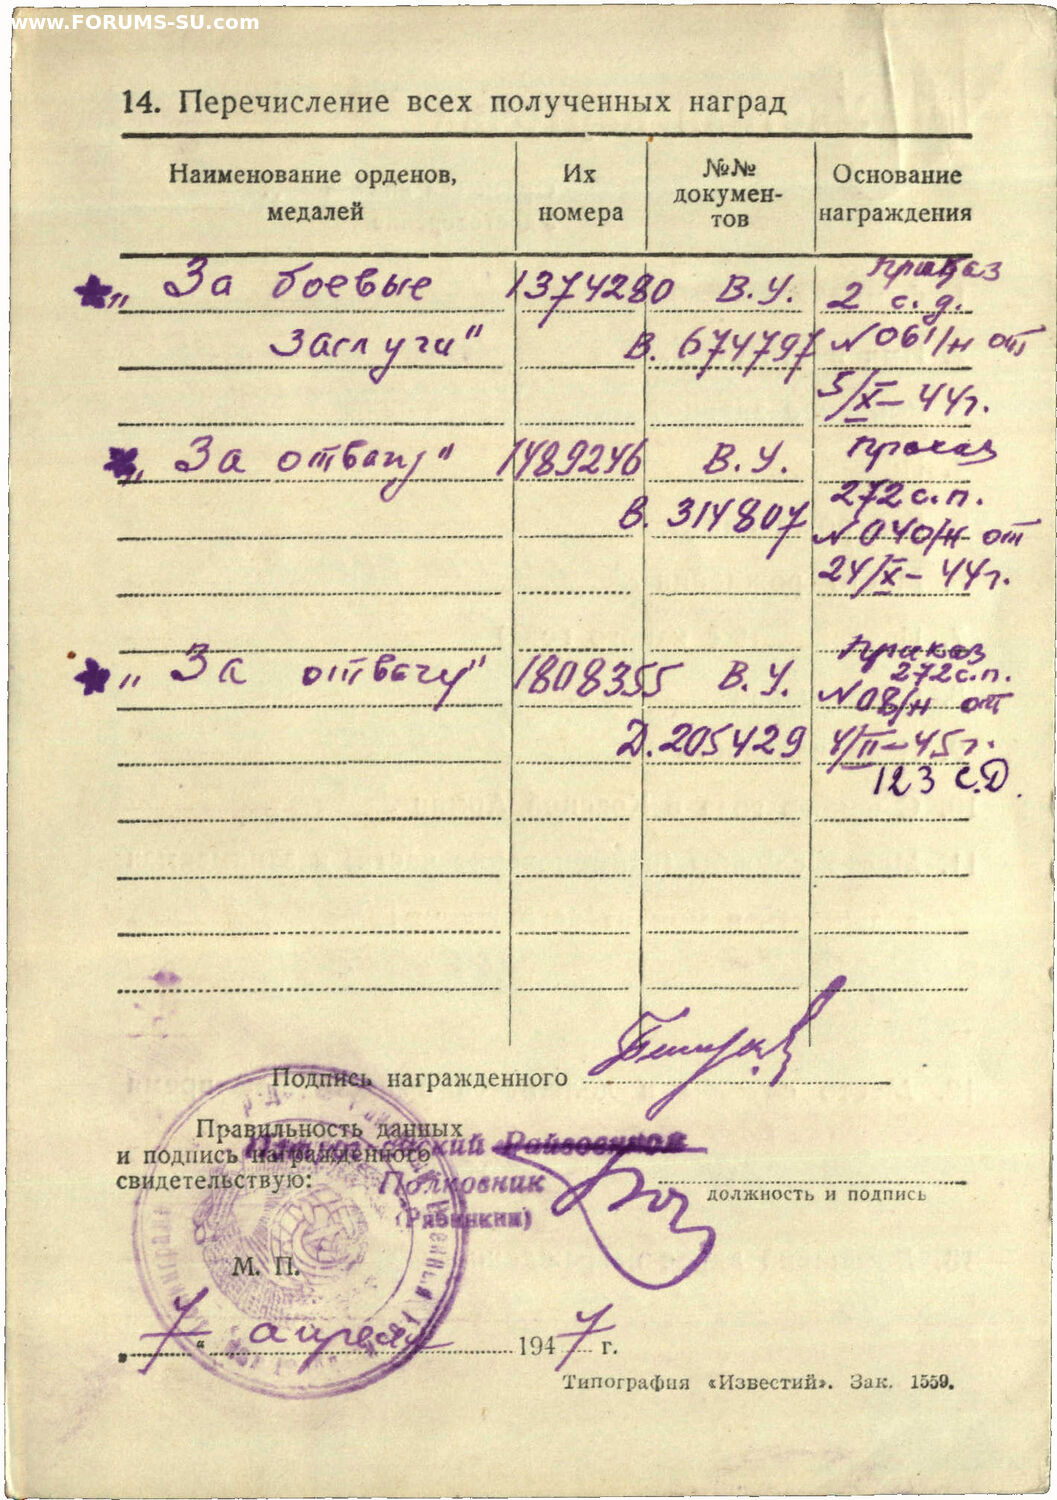 www.FORUMS-SU.com
14. Перечисление всех полученных наград
Наименование орденов, медалей
Их номера
№№ докумен-
тов
Основание награждения
„За боевые 1374280 В.У. Приказ
2 с.д.
заслуги" В. 674797 № 061/н от
5/X - 44г.
„За отвагу" 1489246 В.У. Приказ
272 с.п.
В. 314807 № 040/н от
24/X - 44г.
„За отвагу" 1808355 В.У. Приказ
272 с.п.
№ 08/н от
Д. 205429 4/II - 45г.
123 С.Д.
Подпись награжденного
Правильность данных
и подпись награжденного
свидетельствую:
Райвоенком
Полковник
(Рябинкин)
должность и подпись
М. П.
„ 7 “ апреля 1947 г.
Типография «Известий». Зак. 1559.